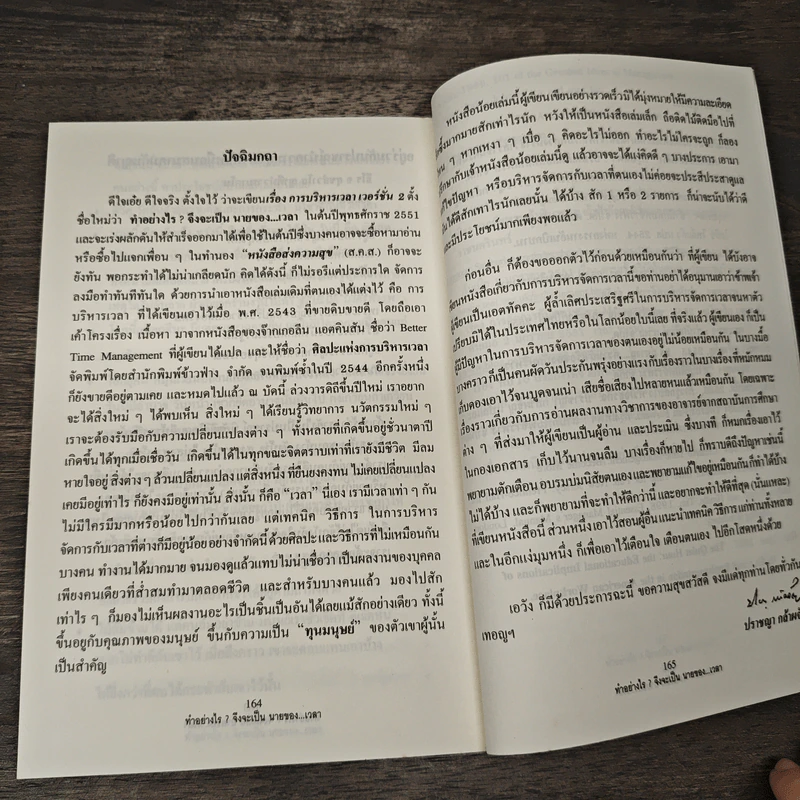 ปัจฉิมกถา
ดีใจเอ๋ย ดีใจจริง ตั้งใจไว้ ว่าจะเขียนเรื่อง การบริหารเวลา เวอร์ชั่น 2 ตั้ง
ชื่อใหม่ว่า ทำอย่างไร ? จึงจะเป็น นายของ...เวลา ในต้นปีพุทธศักราช 2551
และจะเร่งผลักดันให้สำเร็จออกมาได้เพื่อใช้ในต้นปีซึ่งบางคนอาจจะซื้อหามาอ่าน
หรือซื้อไปแจกเพื่อน ๆ ในทำนอง "หนังสือส่งความสุข" (ส.ค.ส.) ก็อาจจะ
ยังทัน พอกระทำได้ไม่น่าเกลียดนัก คิดได้ดังนี้ ก็ไม่รอรีแต่ประการใด จัดการ
ลงมือทำทันทีทันใด ด้วยการนำเอาหนังสือเล่มเดิมที่ตนเองได้แต่งไว้ คือ การ
บริหารเวลา ที่ได้เขียนเอาไว้เมื่อ พ.ศ. 2543 ที่ขายดิบขายดี โดยถือเอา
เค้าโครงเรื่อง เนื้อหา มาจากหนังสือของจ๊าเกอลีน แอตคินสัน ชื่อว่า Better
Time Management ที่ผู้เขียนได้แปล และให้ชื่อว่า ศิลปะแห่งการบริหารเวลา
จัดพิมพ์โดยสำนักพิมพ์ข้าวฟ่าง จำกัด จนพิมพ์ซ้ำในปี 2544 อีกครั้งหนึ่ง
ก็ยังขายดีอยู่ตามเคย และหมดไปแล้ว ณ บัดนี้ ล่วงวารดิถีขึ้นปีใหม่ เราอยาก
จะได้สิ่งใหม่ ๆ ได้พบเห็น สิ่งใหม่ ๆ ได้เรียนรู้วิทยาการ นวัตกรรมใหม่ ๆ
เราจะต้องรับมือกับความเปลี่ยนแปลงต่าง ๆ ทั้งหลายที่เกิดขึ้นอยู่ชั่วนาตาปี
เกิดขึ้นได้ทุกเมื่อเชื่อวัน เกิดขึ้นได้ในทุกขณะจิตตราบเท่าที่เรายังมีชีวิต มีลม
หายใจอยู่ สิ่งต่าง ๆ ล้วนเปลี่ยนแปลง แต่สิ่งหนึ่ง ที่ยืนยงคงทน ไม่เคยเปลี่ยนแปลง
เคยมีอยู่เท่าไร ก็ยังคงมีอยู่เท่านั้น สิ่งนั้น ก็คือ "เวลา" นี่เอง เรามีเวลาเท่า ๆ กัน
ไม่มีใครมีมากหรือน้อยไปกว่ากันเลย แต่เทคนิค วิธีการ ในการบริหาร
จัดการกับเวลาที่ต่างก็มีอยู่น้อยอย่างจำกัดนี้ ด้วยศิลปะและวิธีการที่ไม่เหมือนกัน
บางคน ทำงานได้มากมาย จนมองดูแล้วแทบไม่น่าเชื่อว่า เป็นผลงานของบุคคล
เพียงคนเดียวที่สั่งสมทำมาตลอดชีวิต และสำหรับบางคนแล้ว มองไปสัก
เท่าไร ๆ ก็มองไม่เห็นผลงานอะไรเป็นชิ้นเป็นอันได้เลยแม้สักอย่างเดียว ทั้งนี้
ขึ้นอยู่กับคุณภาพของมนุษย์ ขึ้นกับความเป็น "ทุนมนุษย์" ของตัวเขาผู้นั้น
เป็นสำคัญ
164
ทำอย่างไร ? จึงจะเป็น นายของ...เวลา
หนังสือน้อยเล่มนี้ ผู้เขียนเขียนอย่างรวดเร็วมิได้มุ่งหมายให้มีความละเอียด
ซึ้งมากมายสักเท่าไรนัก หวังให้เป็นหนังสือเล่มเล็ก ถือติดไม้ติดมือไปที่
ๆ หากเหงา ๆ เบื่อ ๆ คิดอะไรไม่ออก ทำอะไรไม่ใครจะถูก ก็ลอง
ศึกษากับเจ้าหนังสือน้อยเล่มนี้ดู แล้วอาจจะได้แง่คิดดี ๆ บางประการ เอามา
แก้ไขปัญหา หรือบริหารจัดการกับเวลาที่ตนเองไม่ค่อยจะประสีประสาดูแล
ได้ดีสักเท่าไรนักเลยนั้น ได้บ้าง สัก 1 หรือ 2 รายการ ก็น่าจะนับได้ว่าดี
และมีประโยชน์มากเพียงพอแล้ว
ก่อนอื่น ก็ต้องขอออกตัวไว้ก่อนด้วยเหมือนกันว่า ที่ผู้เขียน ได้บังอาจ
เขียนหนังสือเกี่ยวกับการบริหารจัดการเวลานี้ ขอท่านอย่าได้อนุมานเอาว่าข้าพเจ้า
ผู้เขียนเป็นเอตทัคคะ ผู้ล้ำเลิศประเสริฐศรีในการบริหารจัดการเวลาจนหาตัว
เปรียบมิได้ในประเทศไทยหรือในโลกน้อยใบนี้เลย ที่จริงแล้ว ผู้เขียนเอง ก็เป็น
ผู้มีปัญหาในการบริหารจัดการเวลาของตนเองอยู่ไม่น้อยเหมือนกัน ในบางมื้อ
บางคราว ก็เป็นคนผัดวันประกันพรุ่งอย่างแรงกับเรื่องราวในบางเรื่องที่หมักหมม
เก็บดองเอาไว้จนบูดจนเน่า เสียชื่อเสียงไปหลายหนแล้วเหมือนกัน โดยเฉพาะ
เรื่องราวเกี่ยวกับการอ่านผลงานทางวิชาการของอาจารย์จากสถาบันการศึกษา
ต่าง ๆ ที่ส่งมาให้ผู้เขียนเป็นผู้อ่าน และประเมิน ซึ่งบางที ก็หมกเรื่องเอาไว้
ในกองเอกสาร เก็บไว้นานจนลืม บางเรื่องก็หายไป ก็ทราบดีถึงปัญหาเช่นนี้
พยายามตักเตือน อบรมบ่มนิสัยตนเอง และพยายามแก้ไขอยู่เหมือนกัน ก็ทำได้บ้าง
ไม่ได้บ้าง และก็พยายามที่จะทำให้ดีกว่านี้ และอยากจะทำให้ดีที่สุด (นั่นแหละ)
ที่เขียนหนังสือนี้ ส่วนหนึ่งเอาไว้สอนผู้อื่น แนะนำเทคนิค วิธีการ แก่ท่านทั้งหลาย
และในอีกแง่มุมหนึ่ง ก็เพื่อเอาไว้เตือนใจ เตือนตนเอง ไปอีกโสดหนึ่งด้วย
เอวัง ก็มีด้วยประการฉะนี้ ขอความสุขสวัสดี จงมีแด่ทุกท่านโดยทั่วกัน
เทอญฯ
ปราชญา กล้าผจัญ
165
ทำอย่างไร ? จึงจะเป็น นายของ...เวลา